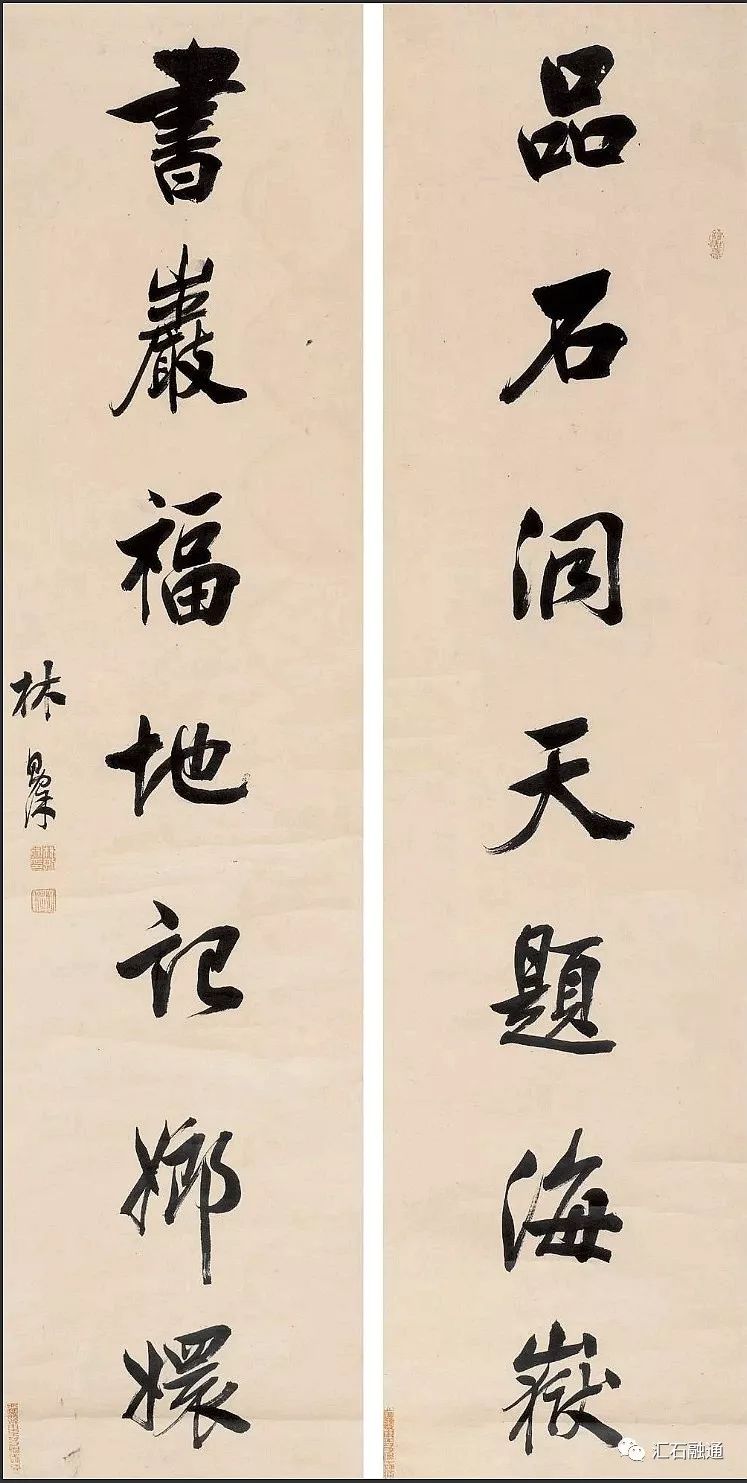 品石洞天題海嶽
書巖福地記嫏嬛
林則
汇石融通